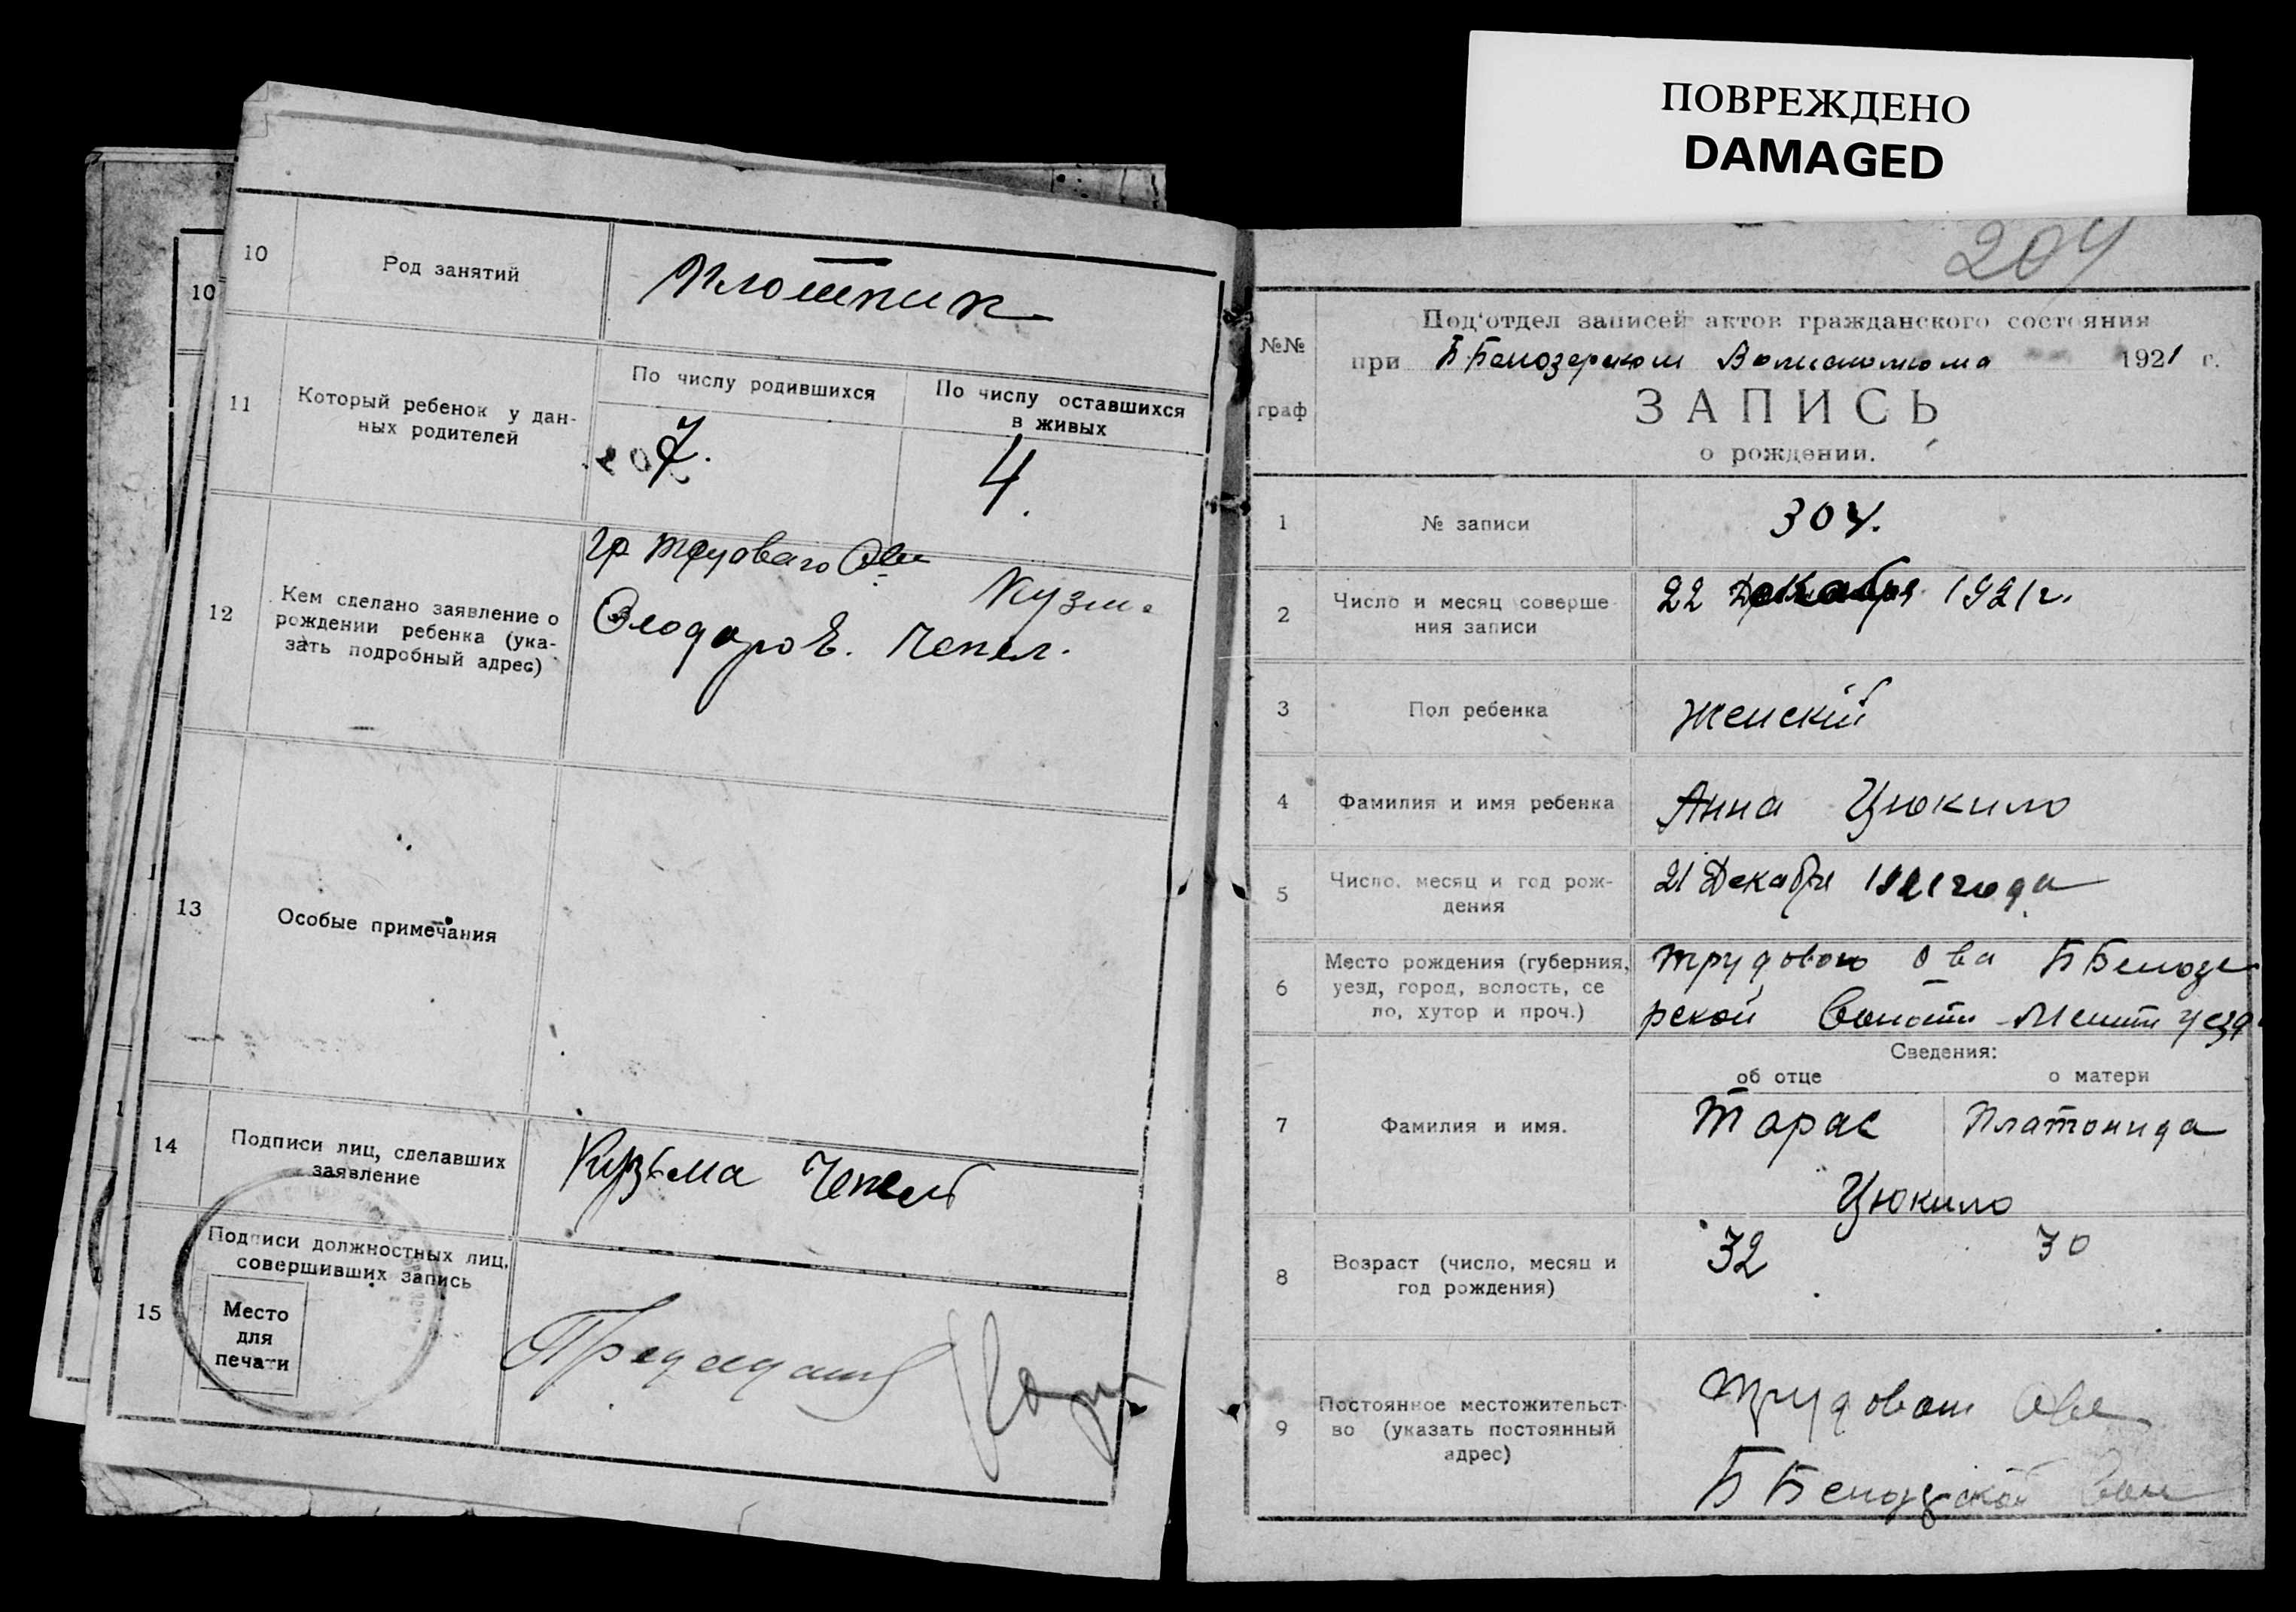 ПОВРЕЖДЕНО
DAMAGED
10
10
Род занятий
Плотник
11
Который ребенок у дан-
ных родителей
По числу родившихся
По числу оставшихся
в живых
7.
4.
12
Кем сделано заявление о
рождении ребенка (ука-
зать подробный адрес)
гр Трудоваго Ова
Кузм.
Чепел.
13
Особые примечания
14
Подписи лиц, сделавших
заявление
Кузьма Чепель
15
Подписи должностных лиц,
совершивших запись
Место
для
печати
Председат
204
№№
граф
Под'отдел записей актов гражданского состояния
при Б Белозерском Волисполкома 1921 г.
ЗАПИСЬ
о рождении.
1
№ записи
304.
2
Число и месяц соверше
ния записи
22 Декабря 1921 г.
3
Пол ребенка
Женский
4
Фамилия и имя ребенка
Анна Цюкило
5
Число, месяц и год рож-
дения
21 Декабря 1921 года
6
Место рождения (губерния,
уезд, город, волость, се
ло, хутор и проч.)
Трудового О ва Б Белозе
рской Волости Мелит уезд
Сведения:
об отце
о матери
7
Фамилия и имя.
Тарас
Платонида
Цюкило
8
Возраст (число, месяц и
год рождения)
32
30
9
Постоянное местожительст-
во (указать постоянный
адрес)
Трудовом Ове
Б Белозрской Вол